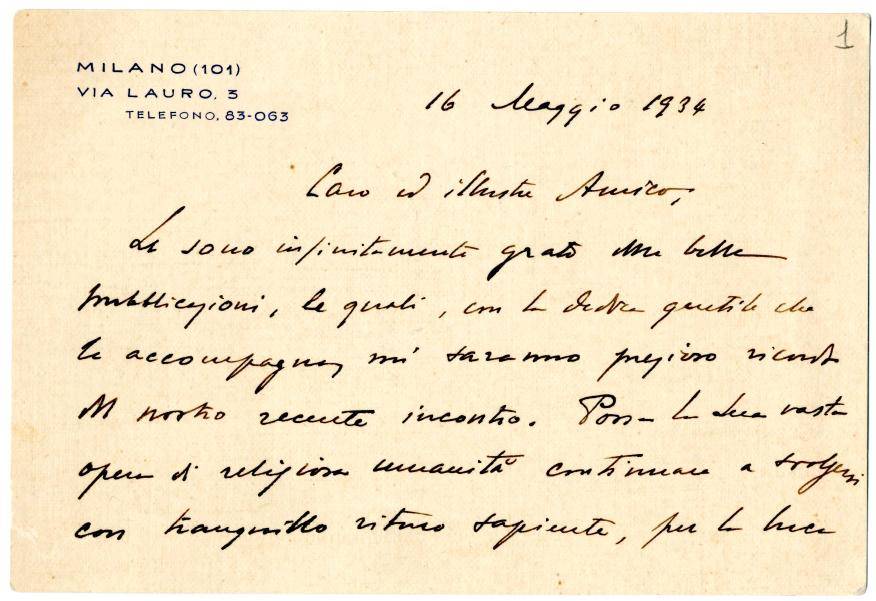 1
MILANO (101)
VIA LAURO, 3
TELEFONO, 83-063
16 Maggio 1934
Caro ed illustre Amico,
Le sono infinitamente grato delle belle
pubblicazioni, le quali, con la dedica gentile che
le accompagna, mi saranno prezioso ricordo
del nostro recente incontro. Possa la sua vasta
opera di religiosa umanità continuare a svolgersi
con tranquillo ritmo sapiente, per la luce